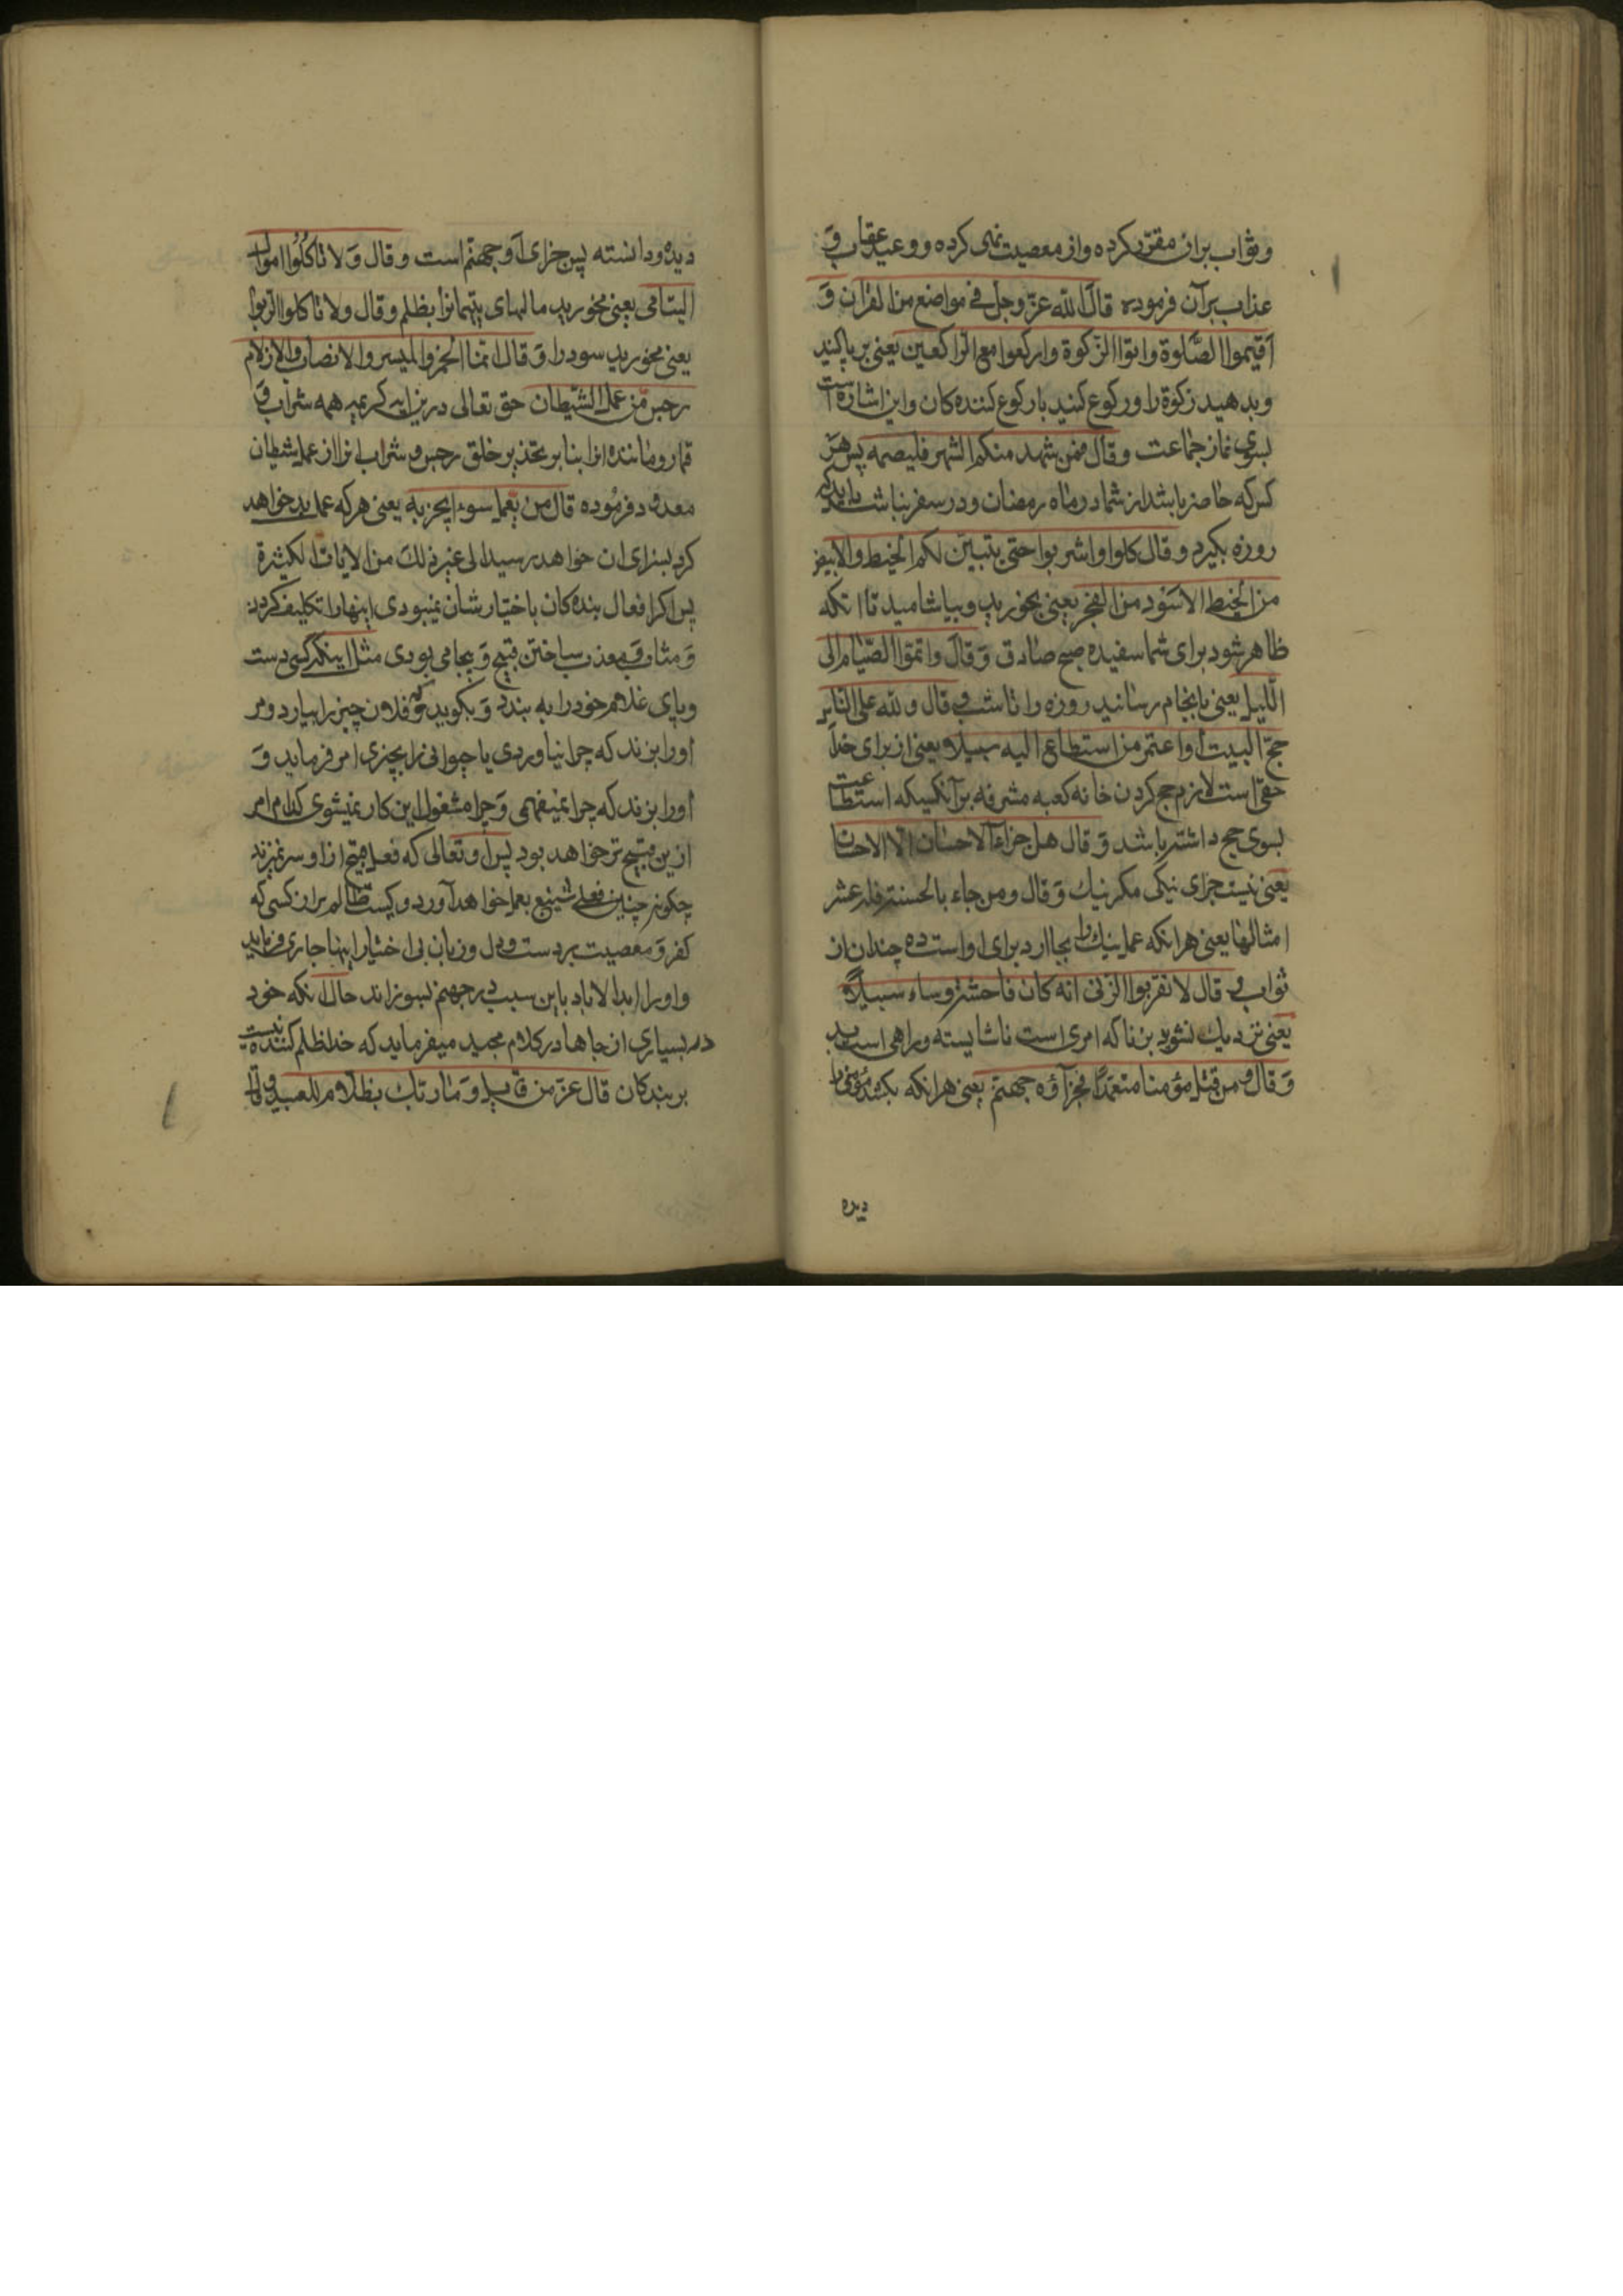 وثواب بران مقرّر کرده واز معصیت نهی کرده و وعید عقاب وَ
عذاب برآن فرموده قال الله عزّ وجلّ فی مواضع من القران وَ
اَقیموا الصّلوة واتوا الزّکوة وارکعوا مع الرّاکعین یعنی بر پا کنید
وبدهید زکوة را ورکوع کنید با رکوع کننده کان واین اشاره است
بسوی نماز جماعت وقال فمن شهد منکم الشهر فلیصمه پس هر
کس که حاضر باشد از شما در ماه رمضان ودر سفر نباشد باید که
روزه بگیرد وقال کلوا واشربوا حتی یتبیّن لکم الخیط الابیض
من الخیط الاسود من الفجر یعنی بخورید وبیاشامید تا انکه
ظاهر شود برای شما سفیده صبح صادق وَقال واتمّوا الصّیام الی
اللّیل یعنی بانجام رسانید روزه را تا شب وقال ولله علی الناس
حجّ البیت او اعتمر من استطاع الیه سبیلا یعنی از برای خدا
حقّ است لازم حج کردن خانه کعبه مشرفه بر آنکسیکه استطاعت
بسوی حج داشته باشد وَقال هل جزاء الاحسان الّا الاحسان
یعنی نیست جزای نیکی مکر نیک وَقال ومن جاء بالحسنة فله عشر
امثالها یعنی هر انکه عمل نیک را بجا ارد برای او است ده چندان از
ثواب وقال لا تقربوا الزنی انه کان فاحشة وساء سبیلا
یعنی نزدیک نشوید بزنا که امری است ناشایسته وراهی است بد
وَقال ومن قتل مؤمنا متعمّدًا فجزآؤه جهنّم یعنی هر انکه بکشد مؤمنی را
دیده
دیده ودانسته پس جزای اَو جهنّم است وقال وَلا تاکُلُوا اموال
الیتامی یعنی مخورید مالهای یتیمانرا بظلم وقال ولا تاکلوا الرّبوا
یعنی مخورید سود را وَقال انّما الخمر والمیسر والانصاب والازلام
رجس من عمل الشّیطان حق تعالی درین ایه کریمه همه شراب وَ
قمار ومانند انرا بنا بر تحذیر خلق رجس وشراب انرا از عمل شیطان
معدود فرمُوده قال من یعمل سوء ایجز به یعنی هر که عمل بد خواهد
کرد بسزای ان خواهد رسید الی غیر ذلک من الایات الکثیرة
پس اکر افعال بنده کان باختیار شان نمیبودی اینها را تکلیف کردن
وَمثاب ومعذب ساختن قبیح وَبیجا می بودی مثل اینکه کسی دست
وپای غلام خود را به بندد وَبکوید که تو فلان چیز را بیار ومر
اورا بزند که چرا نیاوردی یا حیوانی را بچیزی امر فرماید وَ
اورا بزند که چرا نمیفهمی وَچرا مشغول این کار نمیشوی کدام امر
ازین قبیح تر خواهد بود پس او تعالی که فعل قبیح از او سر نمیزند
چکونه چنین فعلی شنیع بعمل خواهد آورد وکیست ظالم تر از کسی که
کفر وَمعصیت بر دست ودل وزبان بی اختیار اینها جاری فرماید
واورا ابدالاباد باین سبب در جهنم بسوزاند حال انکه خود
در بسیاری از جاها در کلام مجید میفرماید که خدا ظلم کننده نیست
بر بندکان قال عزّ من قایل وَما ربّک بظلّام للعبید وقال